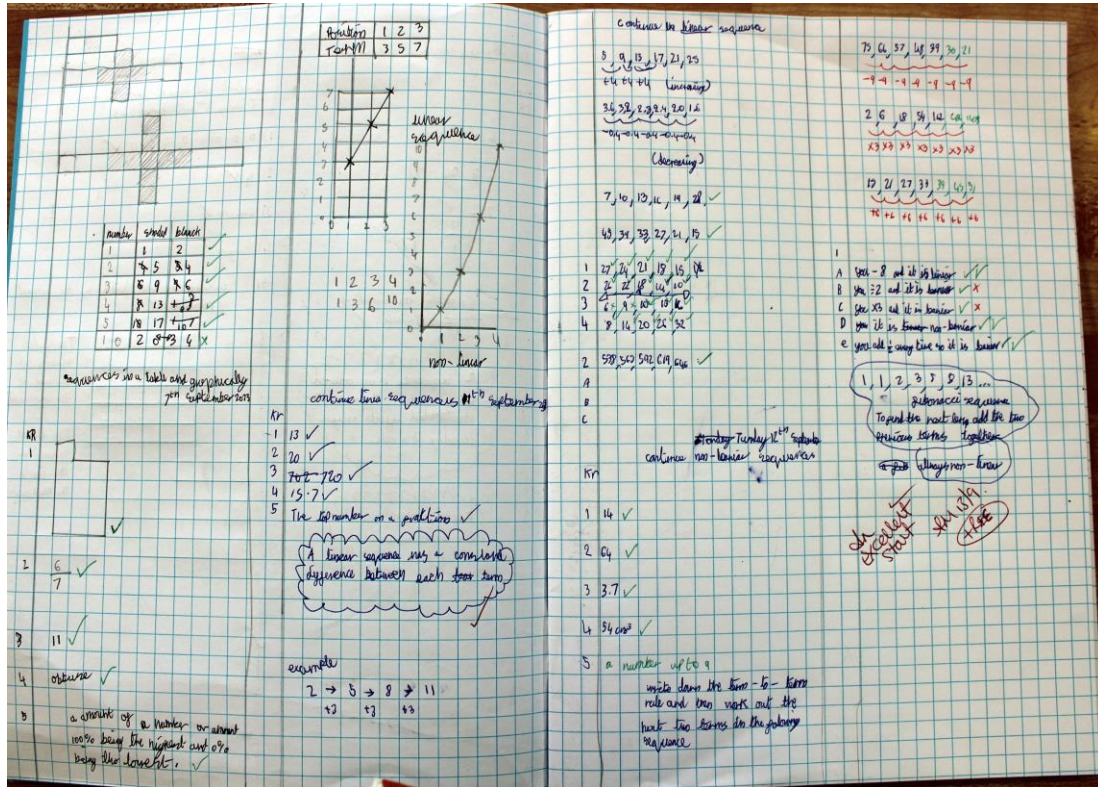 number shaded blanck
1 1 2
2 5 4
3 9 6
4 13
5 17
sequences in a table and graphically
7th September 2023
KR
1
2 6
7
3 11
4 obtuse
5 a amount of a number or amount
100% being the highest and 0%
being the lowest.
Position 1 2 3
Term 3 5 7
7
6
5
4
3
2
1
0 1 2 3
linear
sequence
1 2 3 4
1 3 6 10
0 1 2 3 4
non-linear
continue linea sequences 11th September 23
Kr
1 13
2 20
3 702 720
4 15.7
5 The top number on a
A linear sequence has a constand
difference between each term
example
2 → 5 → 8 → 11
+3 +3 +3
continue the linear sequence
5, 9, 13, 17, 21, 25
+4 +4 +4 (increasing)
3.6, 3.2, 2.8, 2.4, 2.0, 1.6
-0.4 -0.4 -0.4 -0.4 -0.4
(decreasing)
7, 10, 13, 16, 19, 22,
45, 39, 33, 27, 21, 15
1 27, 24, 21, 18, 15, 12
2 26, 22, 18, 14, 10
3
4 8, 14, 20, 26, 32
2
A
B
C
Monday Tunday 12th September
continue non-linear sequences
Kr
1 14
2 64
3 3.7
4 54 cm³
5 a number up to 9
write down the term-to-term
rule and then work out the
next two terms in the
sequence
75, 66, 57, 48, 39, 30, 21
-9 -9 -9 -9 -9 -9 -9
2 6 18 54 162
x3 x3 x3 x3 x3 x3 x3
15, 21, 27, 33, 39, 45, 51
+6 +6 +6 +6 +6 +6 +6
1
A you -8 and it is linier
B you ÷2 and it is
C you x3 and it is
D it is non-linier
e you add ½ every time so it is linier
1, 1, 2, 3, 5, 8, 13...
fibonacci sequence
To find the next add the two
previous terms together
always non-linear
An
excellent
start
13/9